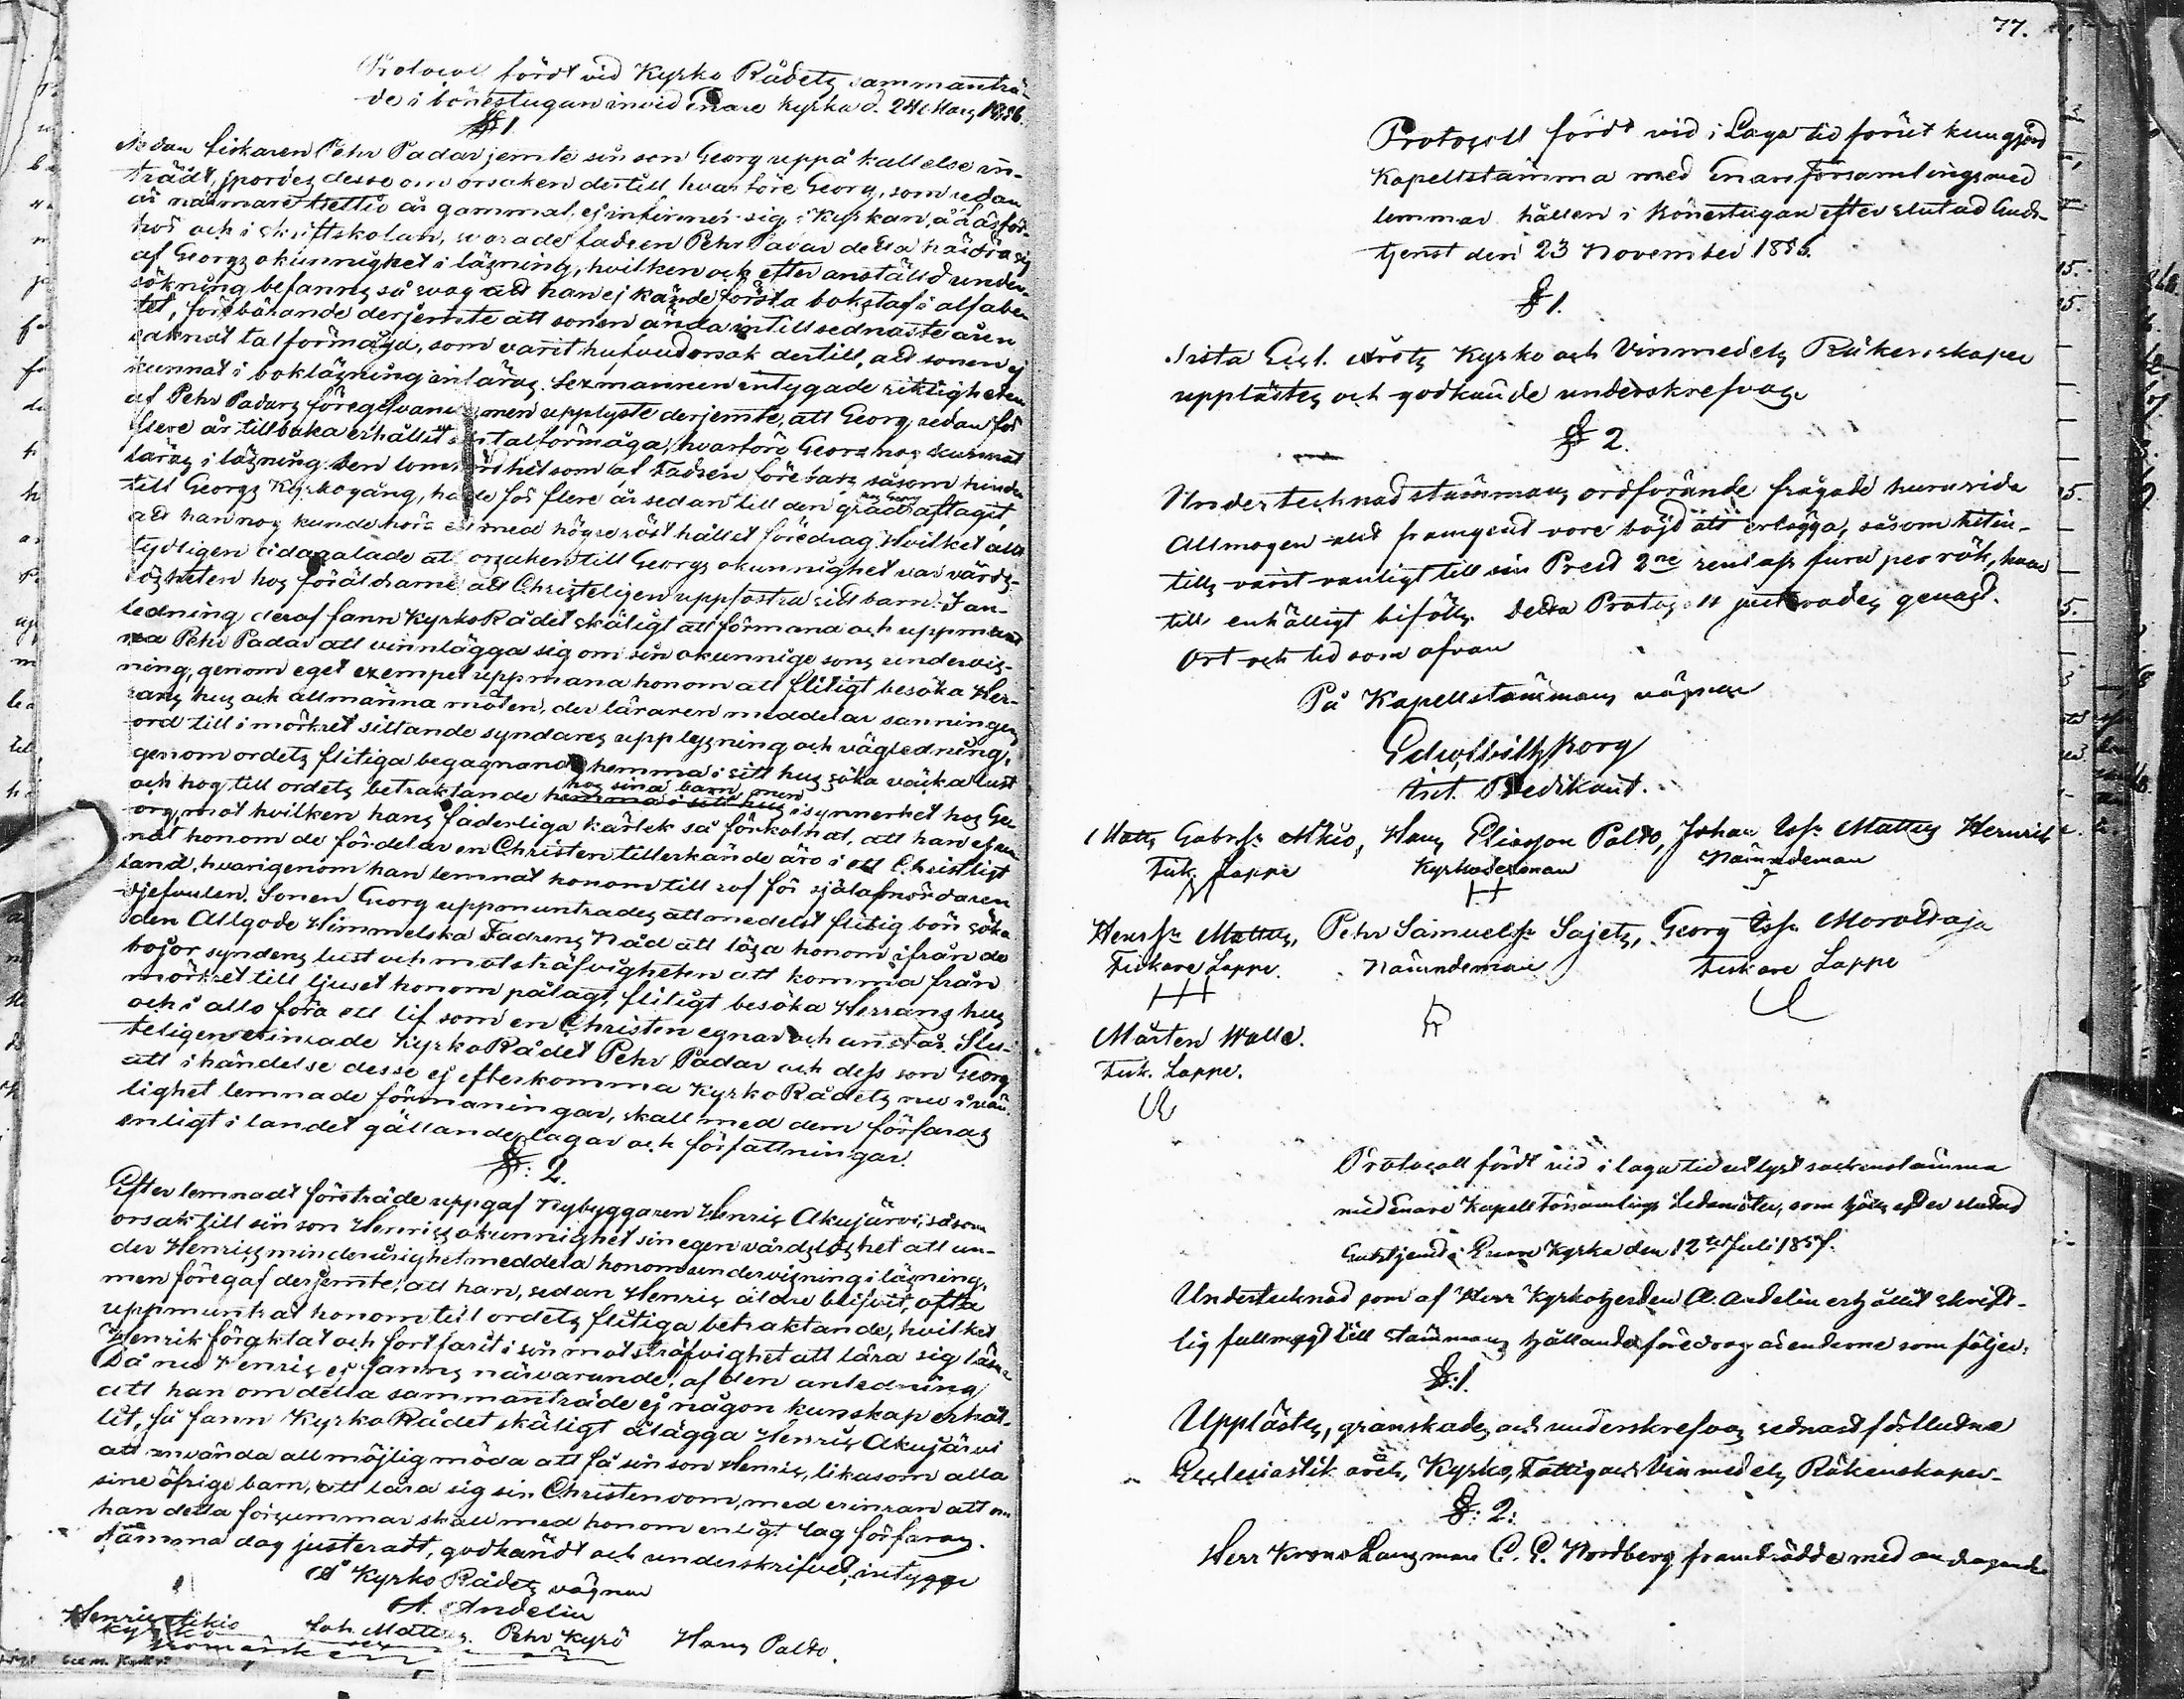 Protocoll fördt vid Kyrko Rådets sammanträ-
de i bönestugan invid Enare Kyrka d. 24 Mars 1856.
§ 1.
Sedan fiskaren Pehr Padar jemte sin son Georg uppå kallelse in-
trädt, spordes desse om orsaken dertill hvarföre Georg, som redan
är närmare trettio år gammal, ej infinner sig i Kyrkan, å läsför-
hör och i skriftskolan, svarade fadren Pehr Padar detta härröra sig
af Georgs okunnighet i läsning, hvilken ock efter anstäld under-
sökning befanns så svag att han ej kände första bokstaf i alfabe-
tet, förebärande derjemte att sonen ända intill sednaste åren
saknat talförmåga, som varit hufvudorsak dertill, att sonen ej
kunnat i bokläsning inläras. Sexmannen intygade riktigheten
af Pehr Padars föregifvande men upplyste derjemte, att Georg redan för
flere år tillbaka erhållit talförmåga, hvarföre Georg nog kunnat
läras i läsning. Den lomhördhet som af Fadren företars såsom hinder
till Georgs Kyrkogång, hade för flere år sedan till den grad hos Georg aftagit,
att han nog kunde höra ett med högre röst hållet föredrag. Hvilket allt
tydligen ådagalade att orsaken till Georgs okunnighet var vårds-
lösheten hos föräldrarne att Christeligen uppfostra sitt barn. I an-
ledning deraf fann KyrkoRådet skäligt att förmana och uppmunt-
ra Pehr Padar att vinnlägga sig om sin okunnige sons undervis-
ning, genom eget exempel uppmana honom att flitigt besöka Her-
rans hus och allmänna möten, der läraren meddelar sanningens
ord till i mörkret sittande syndares upplysning och vägledning,
genom ordets flitiga begagnande hemma i sitt hus söka väcka lust
och hog till ordets betraktande hemma i sitt hus hos sina barn, men i synnerhet hos Ge-
org, mot hvilken hans faderliga kärlek så förkolnat, att han ej un-
nat honom de fördelar en Christen tillerkände äro i ett Christligt
land, hvarigenom han lemnat honom till rof för själamördaren
djefvulen. Sonen Georg uppmuntrades att medelst flitig bön söka
den Allgode Himmelska Fadrens Nåd att lösa honom ifrån de
bojor, syndens lust och motsträfvigheten att komma från
mörkret till ljuset honom pålagt, flitigt besöka Herrans hus
och i allo föra ett lif som en Christen egnar och anstår. Slu-
teligen erinrade KyrkoRådet Pehr Padar och dess son Georg
att i händelse desse ej efterkomma KyrkoRådets nu i vän-
lighet lemnade förmaningar, skall med dem förfaras
enligt i landet gällande lagar och författningar.
§: 2.
Efter lemnadt företräde uppgaf Nybyggaren Henric Akujärvi, såsom
orsak till sin son Henrics okunnighet sin egen vårdslöshet att un-
der Henrics minderårighet meddela honom undervisning i läsning,
men föregaf derjemte, att han, sedan Henric äldre blifvit, ofta
uppmuntrat honom till ordets flitiga betraktande, hvilket
Henrik föraktat och fortfarit i sin motsträfvighet att lära sig läsa.
Då nu Henric ej fanns närvarande, af den anledning
att han om detta sammanträde ej någon kunskap erhål-
lit, så fann KyrkoRådet skäligt ålägga Henric Akujärvi
att använda all möjlig möda att få sin son Henric, likasom alla
sine öfrige barn, att lära sig sin Christendom, med erinran att om
han detta försummar skall med honom enligt lag förfaras.
Samma dag justeradt, godkändt och underskrifvet, intyga
På Kyrko Rådets vägnar
A. Andelin
Henric Aikio Joh. Mattus. Pehr Kyrö Hans Palto.
77.
Protocoll fördt vid i Laga tid förut kungjord
Kapellstämma med Enare Församlings med
lemmar hållen i Bönestugan efter slutad Guds-
tjenst den 23 November 1856.
§ 1.
Sista Eccl. årets Kyrko och Vinmedels Räkenskaper
upplästes och godkände underskrefvos.
§ 2.
Undertecknad stämmans ordförande frågade huruvida
Allmogen allt framgent vore böjd att erlägga, såsom hitin-
tills varit vanligt till sin Prest 2ne renlass fura per rök, hvar
till enhälligt bifölls. Detta Protocoll justerades genast.
Ort och tid som ofvan
På Kapellstämmans vägnar
Edw. Wilh. Borg
Tit. Predikant.
Matts Gabrss. Aikio, Hans Eliasson Palto, Johan Joss. Mattus Henrik
Fisk. Lappe Kyrkovärdman Nämndeman
Henrss. Mattus, Pehr Samuelss. Sajets, Georg Joss. Morottaja
Fiskare Lappe. Nämndeman Fiskare Lappe
Mårten Walle.
Fisk. Lappe.
Protocoll fördt vid i laga tid utlyst sockenstämma
med Enare Kapell Församlings Ledamöter, som hölls efter slutad
Gudstjenst i Enare Kyrka den 12te Juli 1857.
Undertecknad som af Herr Kyrkoherden A. Andelin erhållit skrift-
lig fullmagt till stämmans hållande föredrog ärenderne som följer:
§: 1.
Upplästes, granskades och underskrefvos sednast förflutna
Ecclesiastik årets, Kyrko, Fattig och Vinmedels Räkenskaper.
§: 2:
Herr Krono Länsman C. E. Nordberg framträdde med andragande